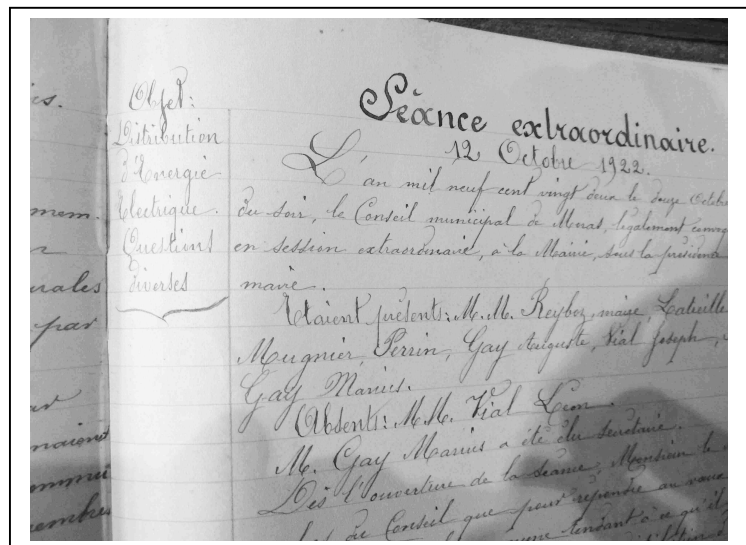 is.
mem.
n
rales
par
naient
ommu
embres
Objet:
Distribution
d'Energie
Electrique.
Questions
diverses
Séance extraordinaire.
12 Octobre 1922.
L'an mil neuf cent vingt deux le douze Octobre
du soir, le Conseil municipal de Menas, légalement
en session extraordinaire, à la Mairie, sous la présidence
maire.
Etaient présents: M.M. Reyboz, maire, Latreille
Mugnier, Perrin, Gay Auguste, Vial Joseph,
Gay Marius.
Absent: M.M. Vial Léon.
M. Gay Marius a été élu secrétaire.
Dès l'ouverture de la séance, Monsieur le
du Conseil que pour répondre au vœux
tendant à ce qu'il